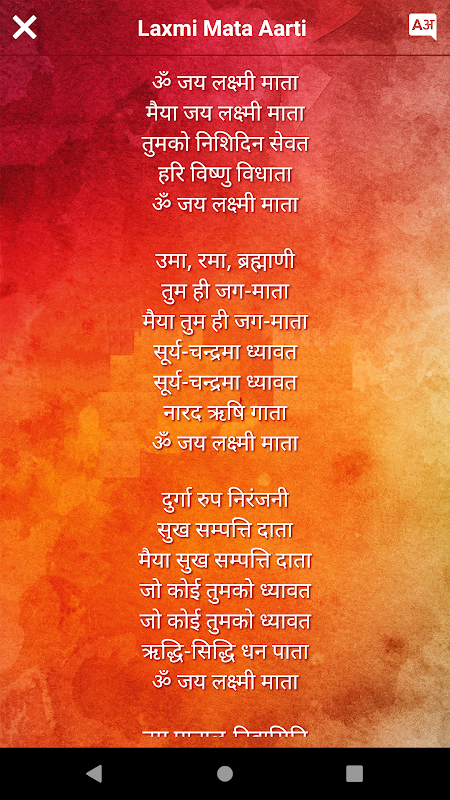 Laxmi Mata Aarti
Aअ
ॐ जय लक्ष्मी माता
मैया जय लक्ष्मी माता
तुमको निशिदिन सेवत
हरि विष्णु विधाता
ॐ जय लक्ष्मी माता
उमा, रमा, ब्रह्माणी
तुम ही जग-माता
मैया तुम ही जग-माता
सूर्य-चन्द्रमा ध्यावत
सूर्य-चन्द्रमा ध्यावत
नारद ऋषि गाता
ॐ जय लक्ष्मी माता
दुर्गा रुप निरंजनी
सुख सम्पत्ति दाता
मैया सुख सम्पत्ति दाता
जो कोई तुमको ध्यावत
जो कोई तुमको ध्यावत
ऋद्धि-सिद्धि धन पाता
ॐ जय लक्ष्मी माता